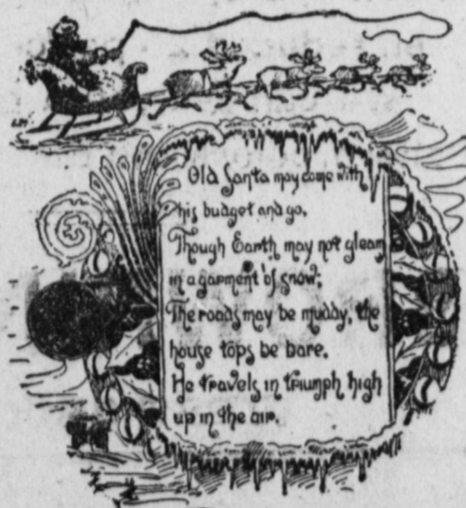 Old Santa may come with
his budget and go,
Though Earth may not gleam
in a garment of snow;
The roads may be muddy, the
house tops be bare,
He travels in triumph high
up in the air.